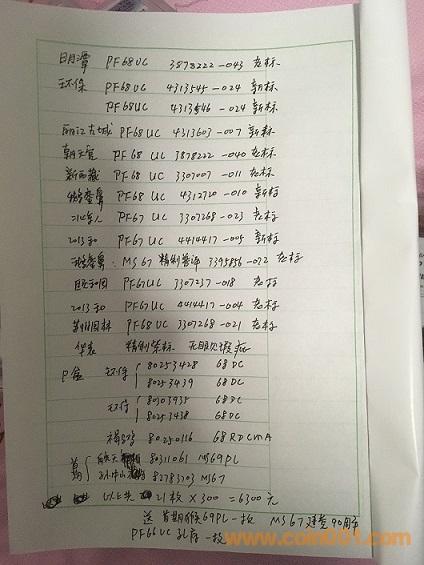 日月潭 PF68UC 3878222-043 老标
环保 PF68 UC 4313545-024 新标
PF68 UC 4313546-024 新标
丽江古城 PF68 UC 4313603-007 新标
朝天宫 PF68 UC 3878222-040 老标
新西藏 PF68 UC 3307007-011 老标
PF68 UC 4312720-010 新标
北京人 PF67 UC 3307268-023 老标
2013和 PF67 UC 4414417-005 新标
MS67 精制普评 3395856-072 老标
PF67UC 3307237-018 老标
2013和 PF67 UC 4414417-004 老标
苏州园林 PF68 UC 3307268-021 老标
华表 精制紫标 无眼见瑕疵
P金 环保 80253428 68 DC
80253439 68DC
环保 80303935 68 DC
80253438 68 DC
80250116 68 RDCMA
首期 航天 80311061 MS69PL
孙中山 82783703 MS67
以上共 21枚 ×300 =6300元
送 首期猴69PL一枚 MS67建党90周年
PF66UC 孔府一枚
www.coin001.com